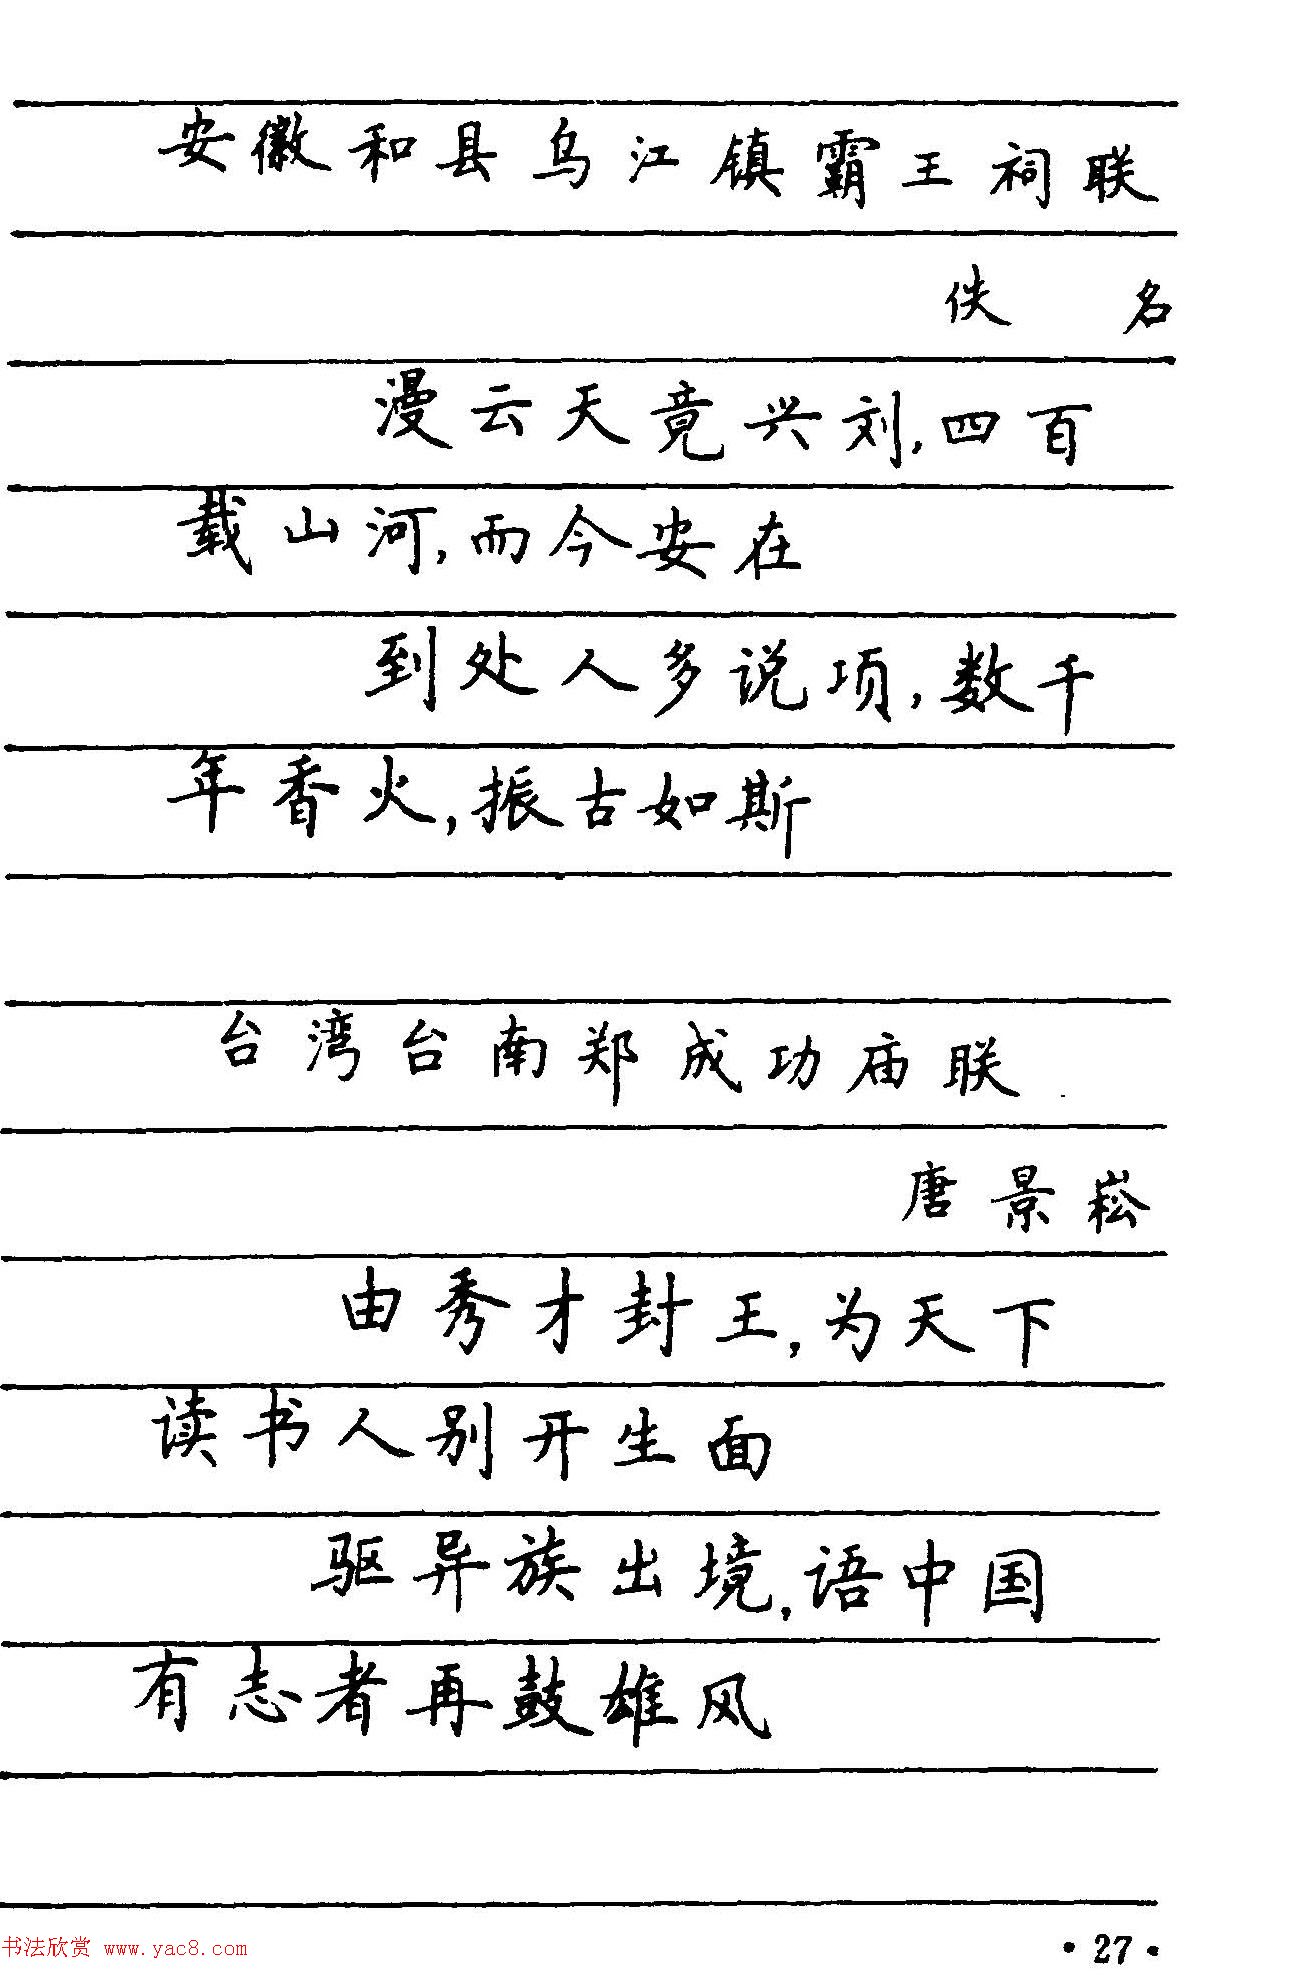 安徽和县乌江镇霸王祠联
佚 名
漫云天竟兴刘,四百
载山河,而今安在
到处人多说项,数千
年香火,振古如斯
台湾台南郑成功庙联
唐景崧
由秀才封王,为天下
读书人别开生面
驱异族出境,语中国
有志者再鼓雄风
书法欣赏 www.yac8.com
·27·